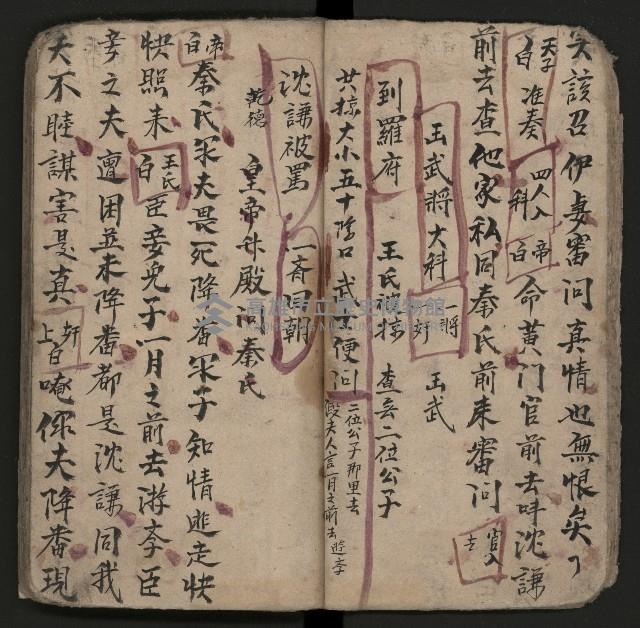 矣該召伊妻審問真情也無恨矣了
天子白准奏 四人入科 帝白 命黄门官前去呌沈謙
前去查他家私同秦氏前来審问 官入去
玉武將大科 一將 玉武
到羅府 王氏 查無二位公子
共掠大小五十除口 武 便问 二位公子那里去 夫人言一月之前去遊李
沈謙被罵 一斉 朝
乾德 皇帝 殿 秦氏
帝白 秦氏罙夫畏死降番罙子知情逃走快
快照来 王氏白 臣妾免子一月之前去游李臣
妾之夫遭困並未降番都是沈謙同我
夫不睦謀害是真 上白 唵你夫降番現
高雄市立歷史博物館
KAOHSIUNG MUSEUM OF HISTORY